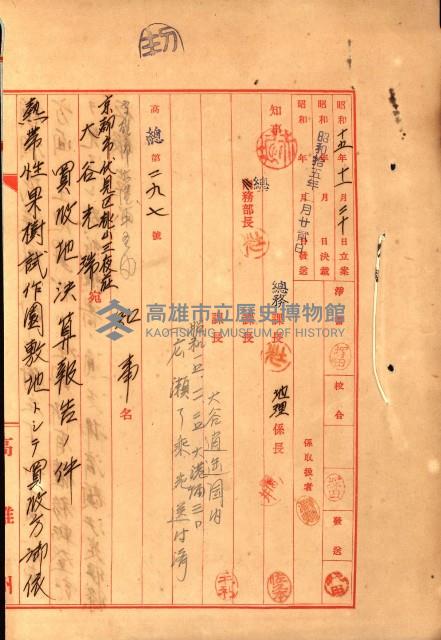 昭和十五年十一月二十日立案
昭和 年 月 日決裁
昭和 年 月 日發送
昭和拾五年 月廿貳日
淨書
校合
發送
知事
總務部長
總務課長
地理係長
係取扱者
課長
課長
大谷逍遙園内
廣瀬了乘光送付濟
高總第二九七號
京都市伏見区桃山三夜莊
大谷光瑞宛
知事名
買收地決算報告ノ件
熱帶性果樹試作園敷地トシテ買收方御依
高雄州
高雄市立歷史博物館
KAOHSIUNG MUSEUM OF HISTORY